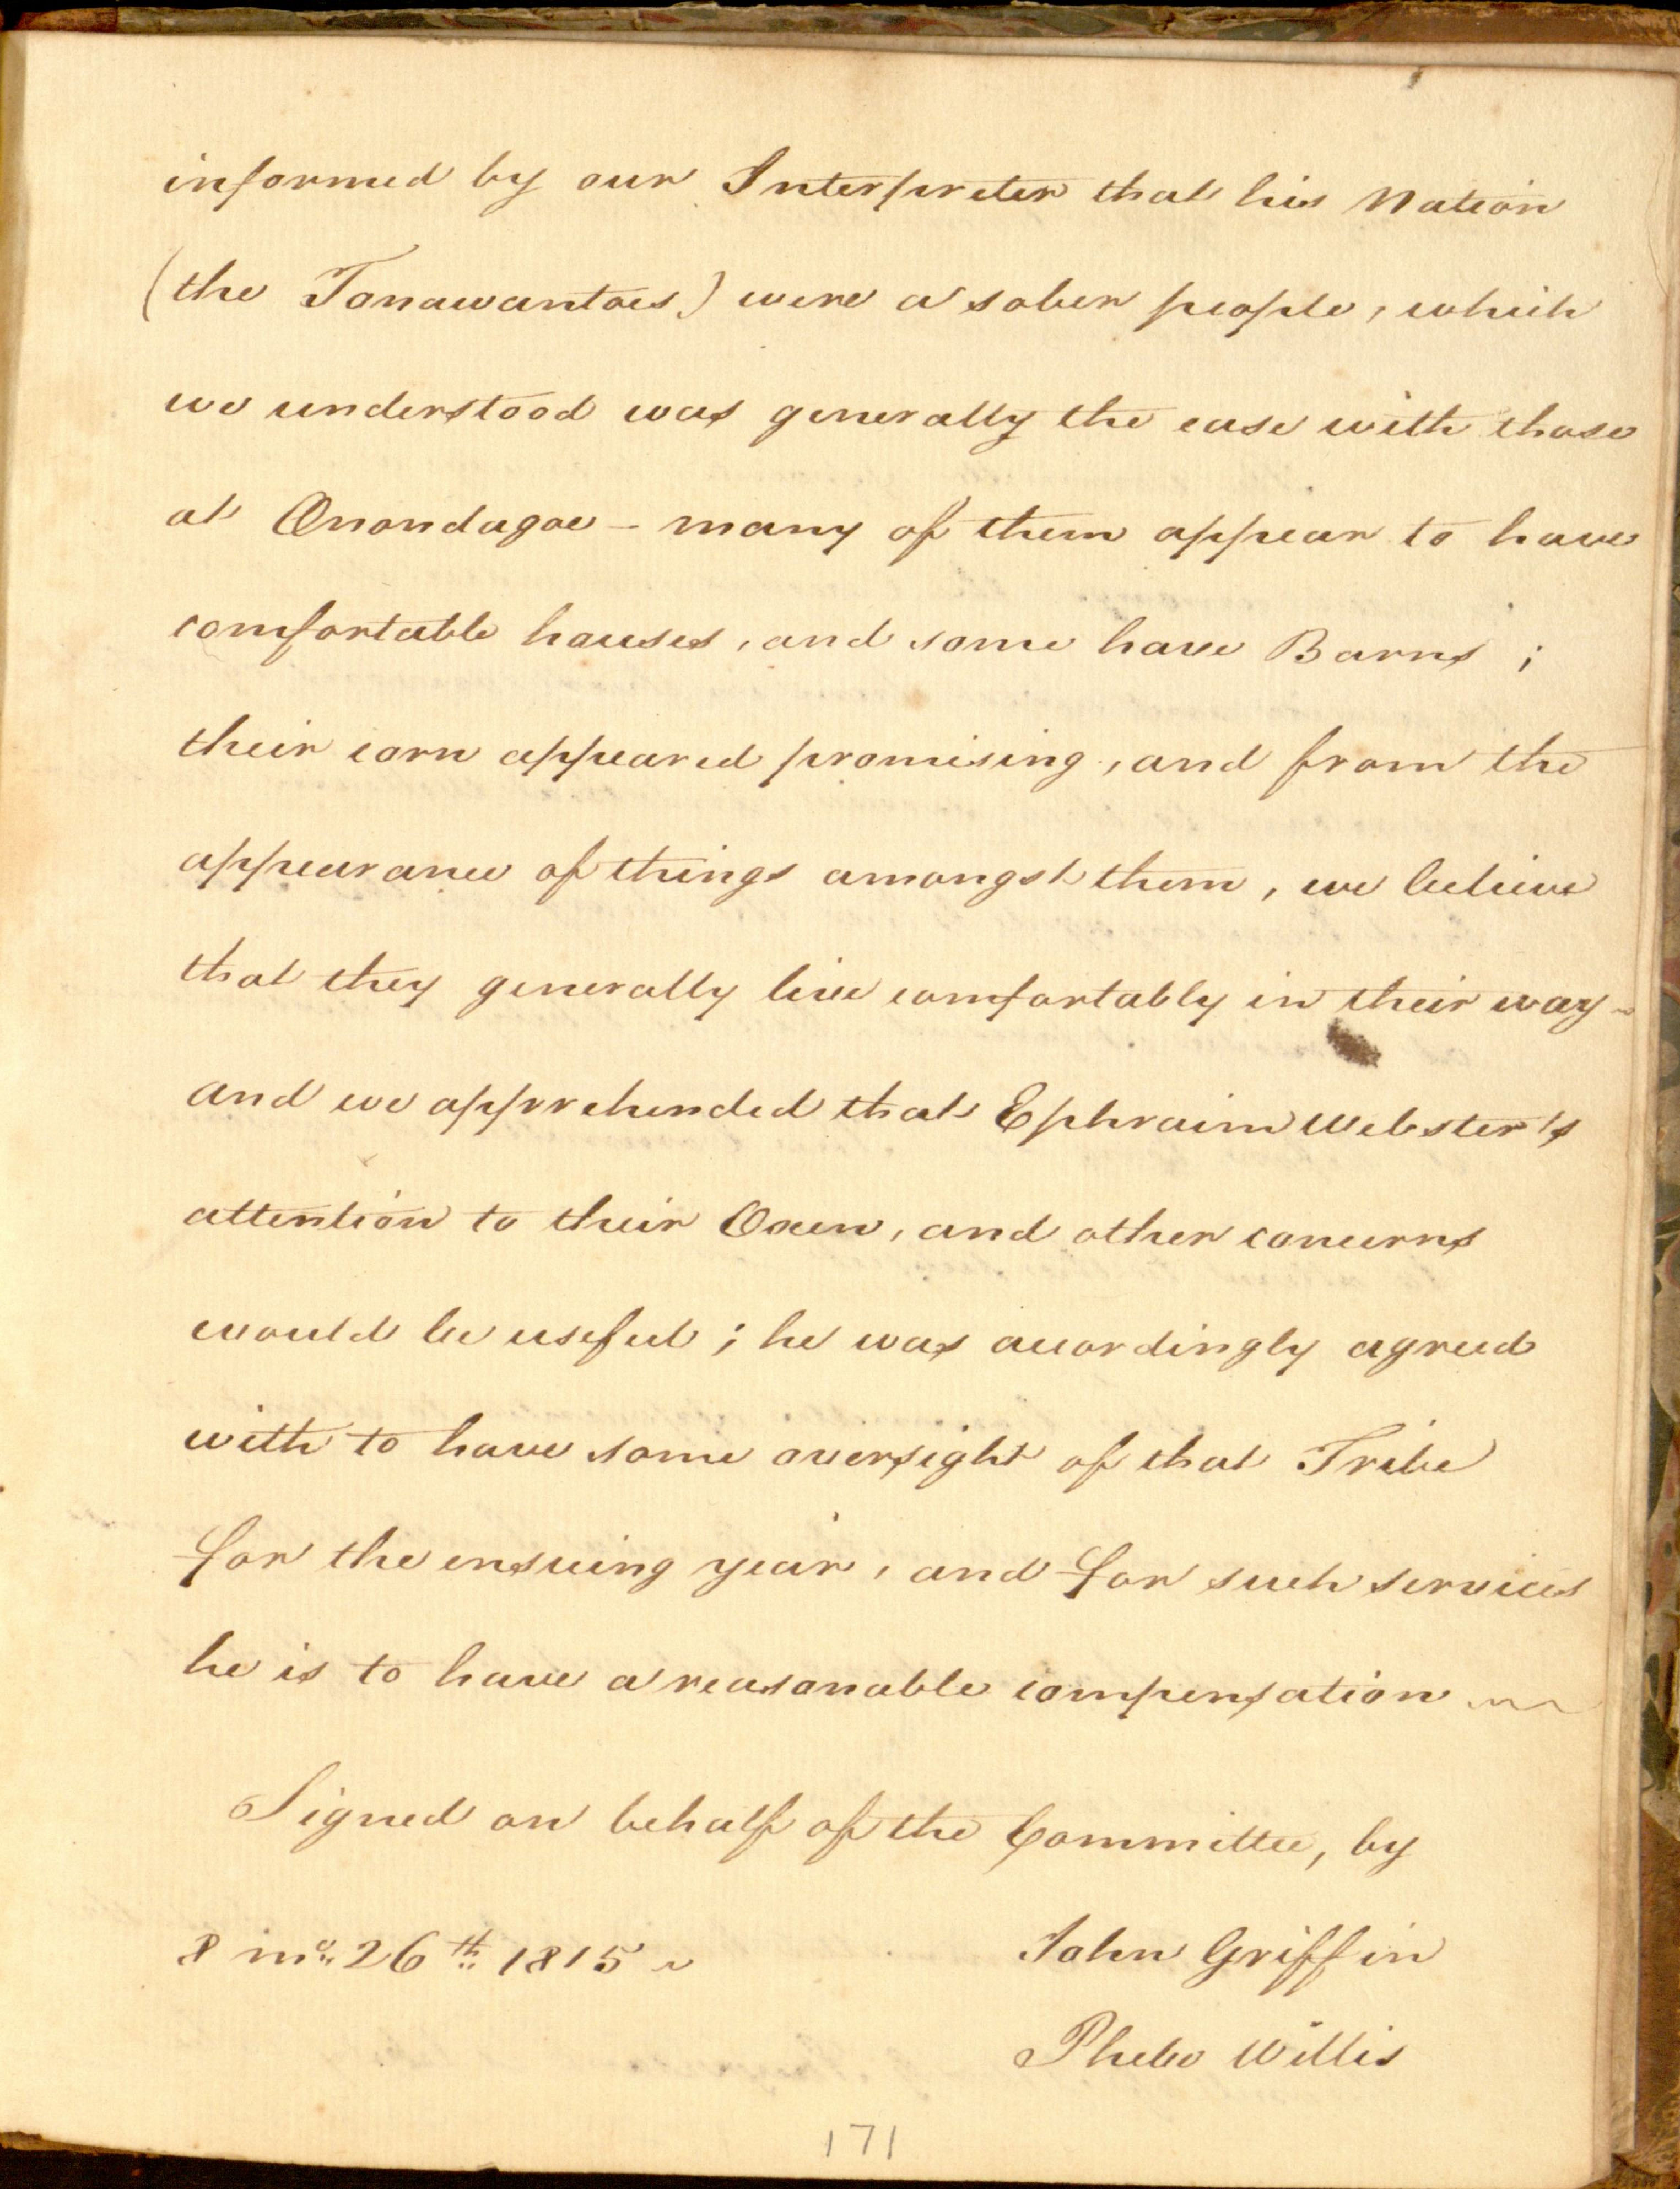 informed by our Interpreter that his Nation
(the Tonawantoes) were a sober people, which
we understood was generally the case with those
at Onondagoe - many of them appear to have
comfortable houses, and some have Barns ;
their corn appeared promising, and from the
appearance of things amongst them, we believe
that they generally live comfortably in their way -
and we apprehended that Ephraim Webster's
attention to their Oxen, and other concerns
would be useful ; he was accordingly agreed
with to have some oversight of that Tribe
for the ensuing year, and for such services
he is to have a reasonable compensation
Signed on behalf of the Committee, by
8 mo. 26th 1815
John Griffin
Phebe Willis
171